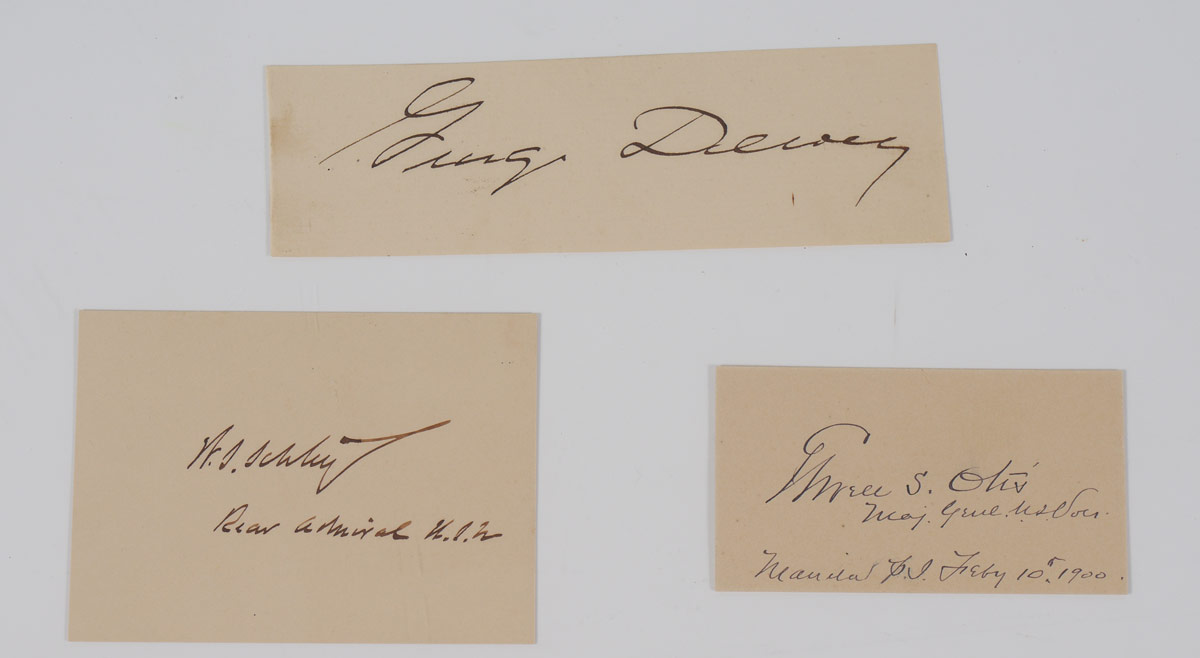 George Dewey
W. S. Schley
Rear Admiral U.S.N
Elwell S. Otis
Maj. Genl. U.S. Vols.
Manila P.I. Feby 10th, 1900.